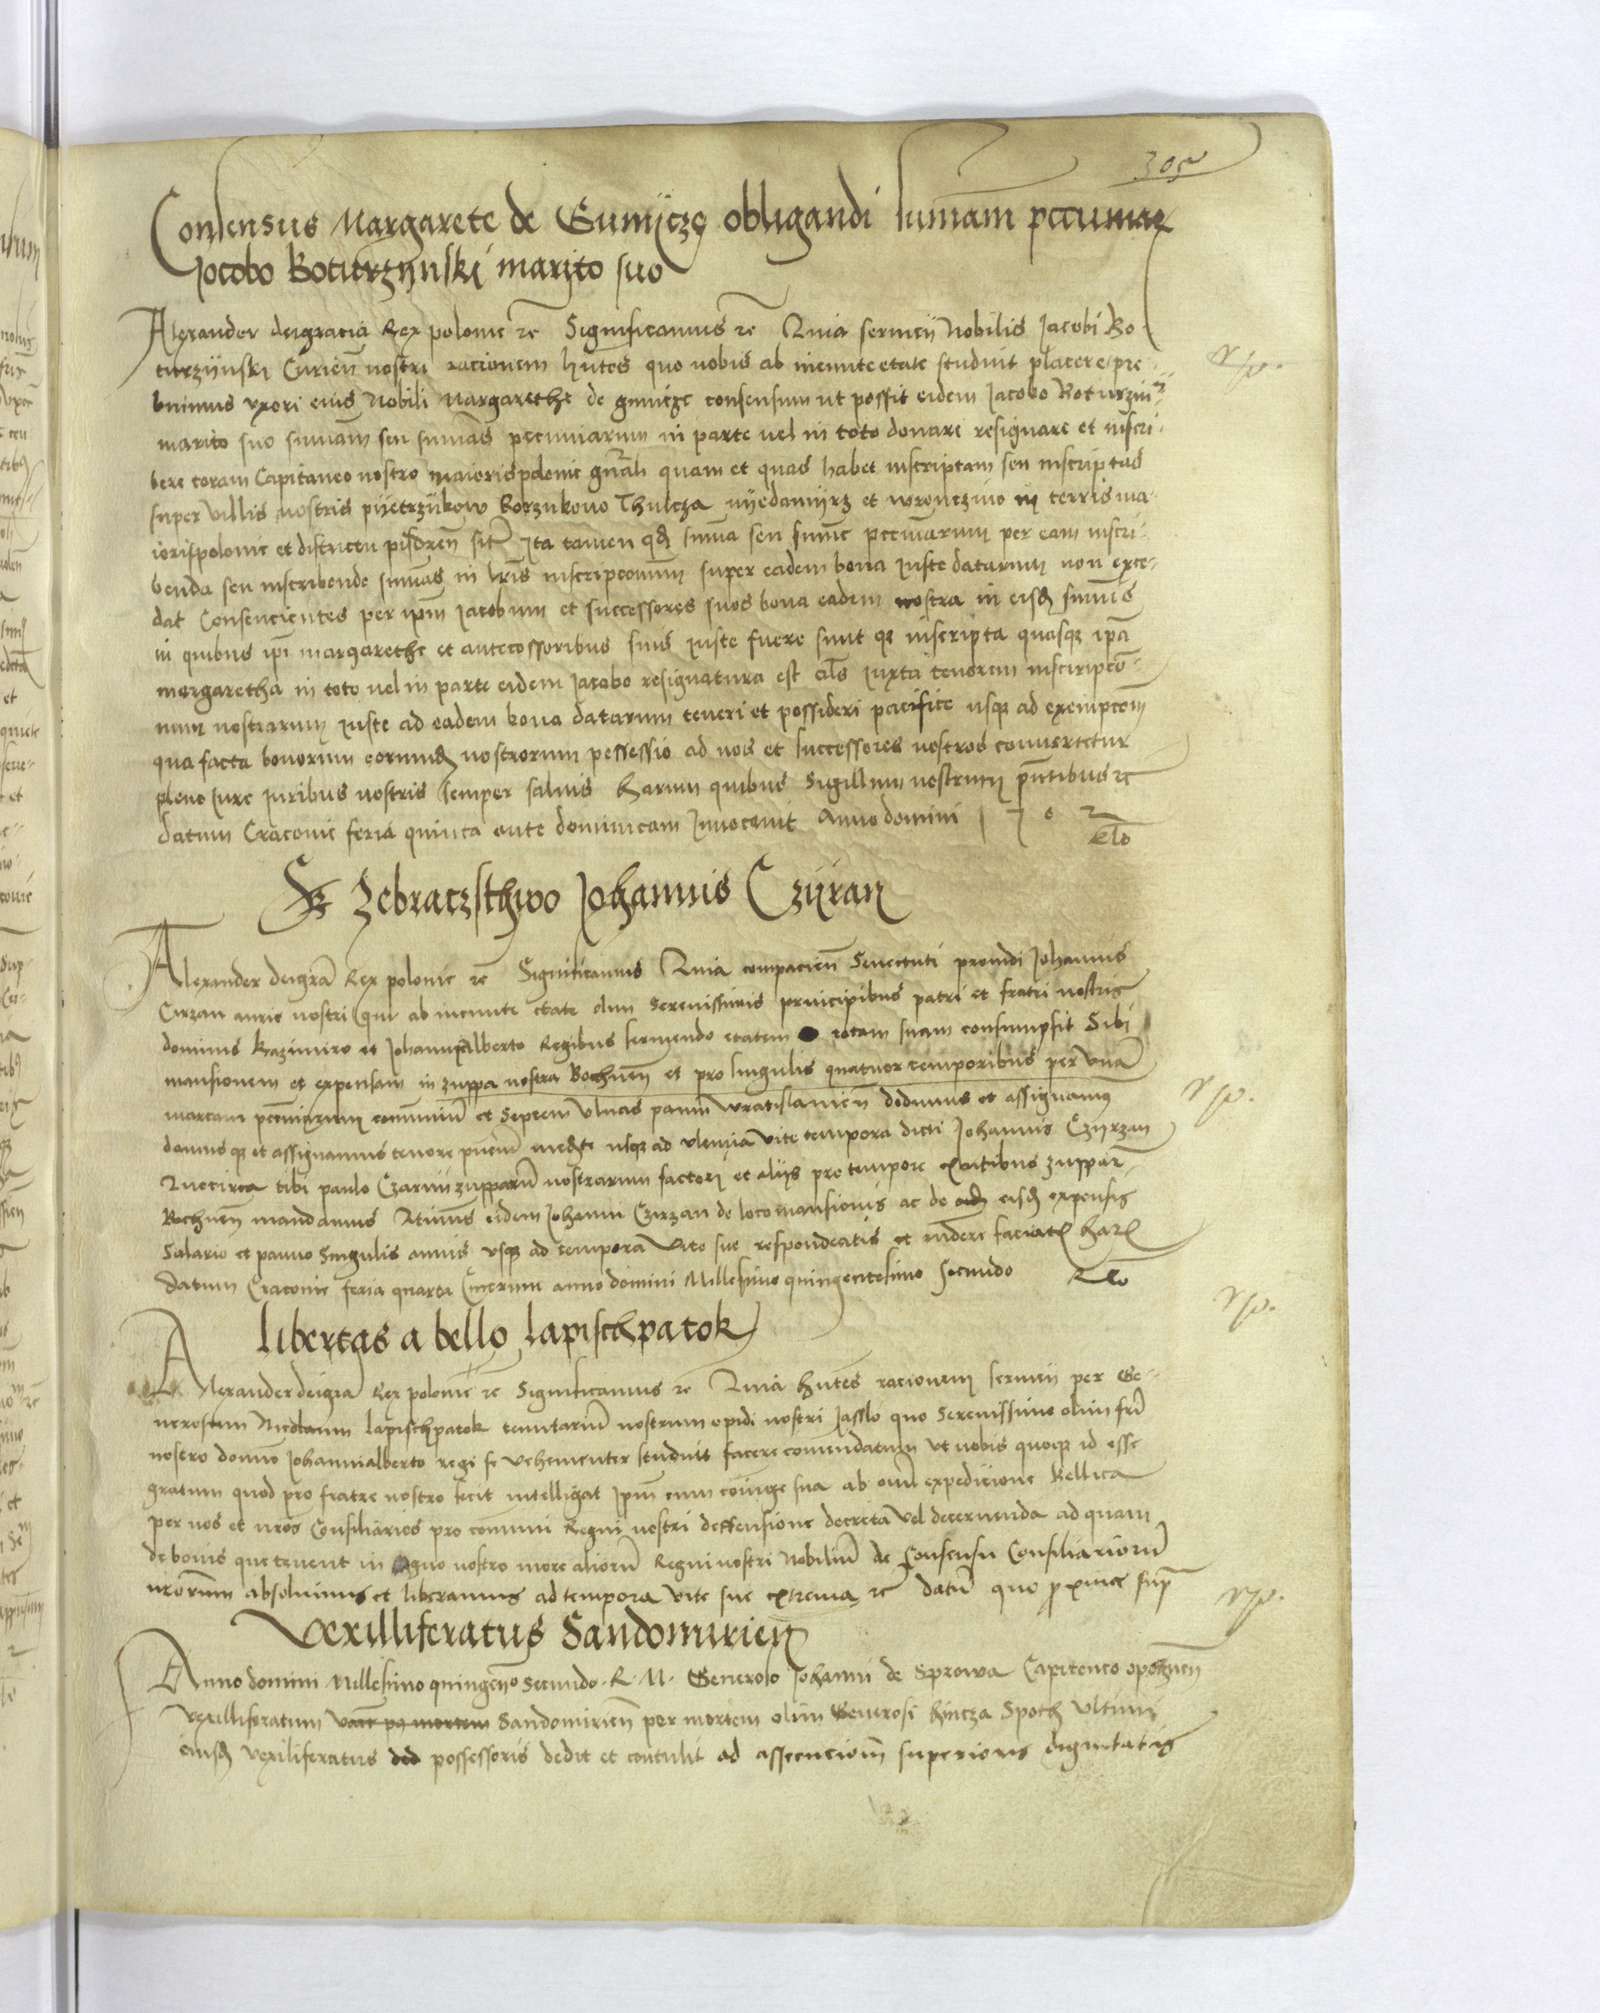 305
Consensus Margarete de Gumijcze obligandi sumam pecuniar
Jacobo Boturzijnski marito suo
Alexander deigracia Rex polonie rc Significamus rc Quia servicij Nobilis Jacobi Bo-
turzijnski Curien nostri racionem hntes quo nobis ab ineunte etate studuit placere pre-
buimus vxori eius Nobili Margarethe de gmicze consensum ut possit eidem Jacobo Boturzin
marito suo sumam seu sumas pecuniarum in parte uel in toto donare resignare et inscri-
bere coram Capitaneo nostro maiorispolonie gnrali quam et quas habet inscriptam seu inscriptas
super villis nostris pijetrzijkow Borzukowo Thulcza nijedamijrz et wronczino in terris ma-
iorispolonie et districtu pisdren sit Ita tamen qd suma seu sume pecuniarum per eam inscri-
benda seu inscribende sumas in lris inscripcionum super eadem bona iuste datarum non exce-
dat Consencientes per ipm Jacobum et successores suos bona eadem nostra in eisd sumis
in quibus ipi margarethe et antecessoribus suis iuste fuere sunt qz inscripta quasqz ipa
margaretha in toto uel in parte eidem Jacobo resignatura est als iuxta tenorem inscripcio-
num nostrarum iuste ad eadem bona datarum teneri et possideri pacifice usqz ad exempcionem
qua facta bonorum eorumd nostrorum possessio ad nos et successores nostros conuertetur
pleno iure iuribus nostris semper saluis Harum quibus Sigillum nostrum pntibus rc
Datum Cracouie feria quinta ante dominicam Inuocauit Anno domini 1502
Rlo
Zebraczsthwo Johannis Czijran
Alexander deigra Rex polonie rc Significamus Quia compacien Senectuti prouidi Johannis
Cirzan aurie nostri qui ab ineunte etate olim Serenissimis principibus patri et fratri nostris
dominis Kazimiro et Johannialberto Regibus seruiendo etatem totam suam consumpsit Sibi
mansionem et expensam in zuppa nostra Bochnen et pro singulis quatuor temporibus per vna
marcam pecuniarum communiu et Septem vlnas panni wratislauien dedimus et assignamus
damusqz et assignamus tenore pncium medte usqz ad vltima vite tempora dicti Johannis Czijrzan
Quocirca tibi paulo Czarnij zupparu nostrarum factori et alijs pro tempore existtibus zuppar
Bochnen mandamus Qtinus eidem Johanni Czirzan de loco mansionis ac de eisd expensis
Salario et panno Singulis annis vsqz ad tempora vite sue respondeatis et ... faciatis har
Datum Cracouie feria quarta Cinerum anno domini Millesimo quingentesimo secundo Rlo
Libertas a bello Lapischpatok
Alexander deigra Rex polonie rc Significamus rc Quia hntes racionem seruicij per Ge-
nerosum Nicolaum lapischpatok tenutariu nostrum opidi nostri Jasslo quo Serenissimo olim fri
nostro domno Johannialberto regi se vehementer studuit facere comendatum vt nobis quoqz id esse
gratum quod pro fratre nostro fecit intelligat ipm cum coniuge sua ab omi expedicione bellica
per nos et nros Consiliarios pro comuni Regni nostri deffensione decreta vel decernenda ad quam
de bonis que tenent in regno nostro more alioru Regni nostri Nobiliu de Consensu Consiliarioru
nrorum absoluimus et liberamus ad tempora vite sue extrema rc datu quo proxime supra
Vexilliferatus Sandomirien
Anno domini Millesimo quingenmo Secundo R M Generoso Johanni de Sprowa Capitaneo opoznen
vexilliferatum vacan pq mortem Sandomirien per mortem olim Generosi Hincza Spoth vltimi
eiusd vexilliferatus ded possessoris dedit et contulit ad assecucionem superioris dignitatis